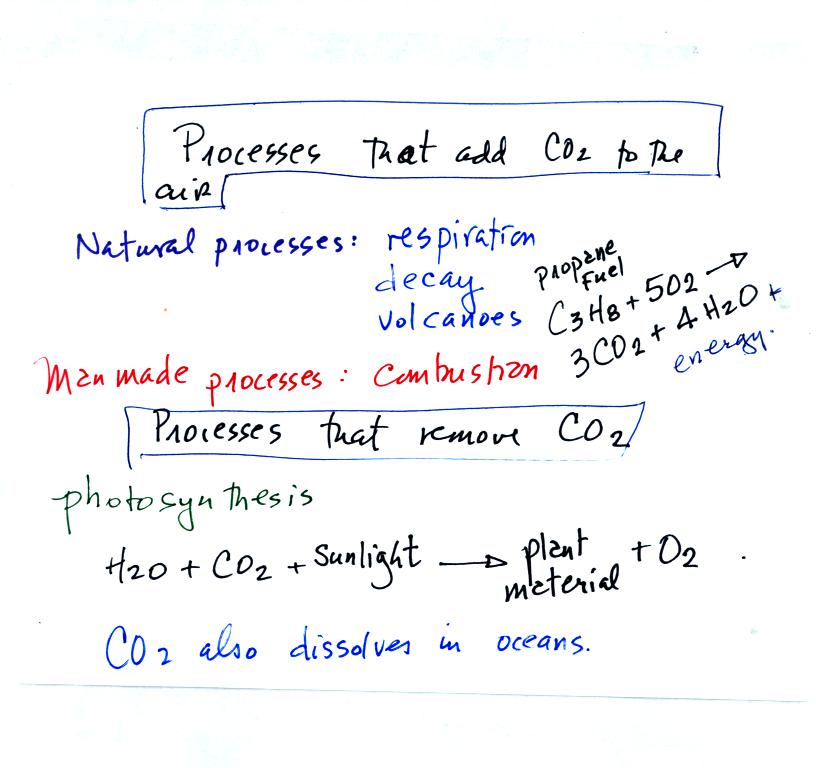 Processes that add CO2 to the
air
Natural processes: respiration
decay
volcanoes
propane
fuel
C3H8 + 5O2 →
3CO2 + 4H2O +
energy.
Man made processes: combustion
Processes that remove CO2
photosynthesis
H2O + CO2 + Sunlight → plant material + O2
CO2 also dissolves in oceans.